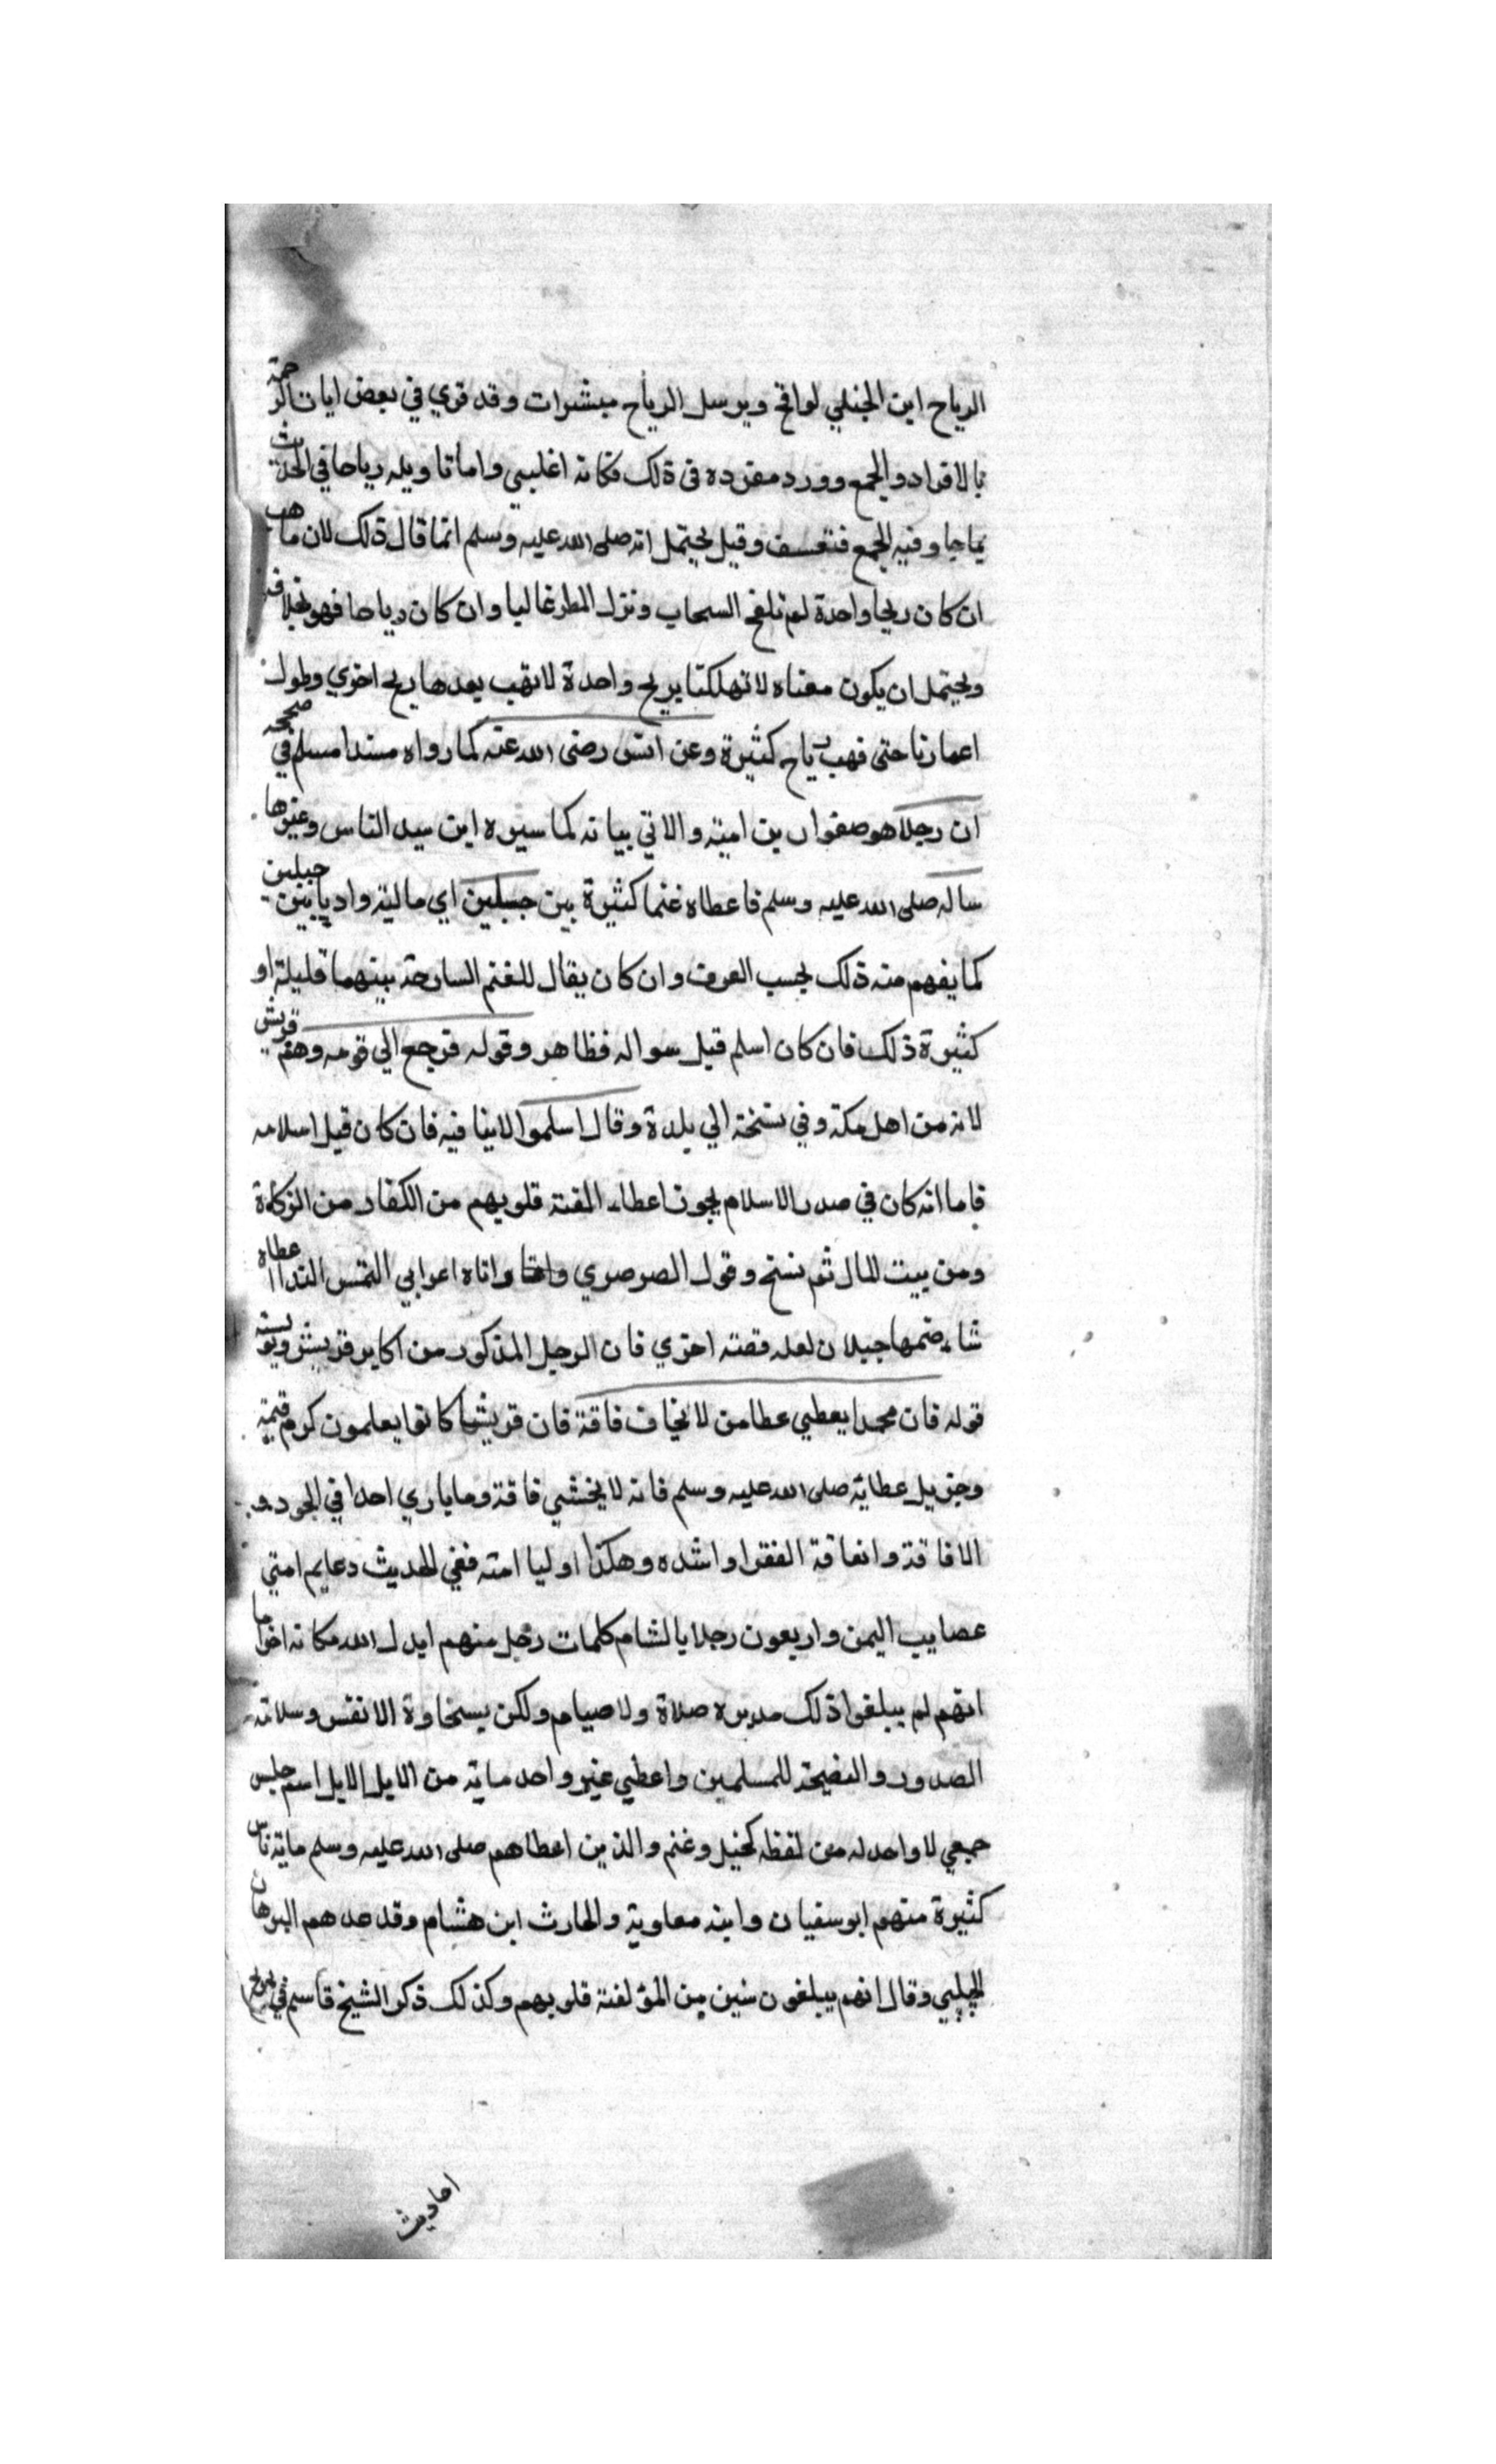 الرياح ابن الجنلي لواقح ويرسل الرياح مبشرات وقد قري في بعض ايات الرحمة
بالافراد والجمع وورد مفرده في ذلك فكانه اغلبي واما تاويله رياحا في الحديث
بما جا وفيه الجمع فتعسف وقيل يحتمل انه صلى الله عليه وسلم انما قال ذلك لان ما هب
ان كان ريحا واحدة لم تلقح السحاب ونزل المطر غالبا وان كان رياحا فهو بخلافه
ويحتمل ان يكون معناه لاتهلكنا بريح واحدة لاتهب بعدها ريح اخري وطول
اعمارنا حتى فهب رياح كثيرة وعن انس رضى الله عنه كما رواه مسندا مسلم في صحيحه
ان رجلا هو صفوان بن امية والاتي بيانه كما سيره ابن سيد الناس وغيرها
ساله صلى الله عليه وسلم فاعطاه غنما كثيرة بين جبلين اي مالية واديا بين جبلين
كما يفهم منه ذلك بحسب العرف وان كان يقال للغنم السارحة بينهما قليلة او
كثيرة ذلك فان كان اسلم قبل سواله فظاهر وقوله فرجع الي قومه وهم قريش
لانه من اهل مكة وفي نسخة الي بلدة وقال اسلموا لاينافيه فان كان قبل اسلامه
فاما انه كان في صدر الاسلام يجوز اعطاء المفتة قلوبهم من الكفار من الزكاة
ومن بيت المال ثم نسخ وقول الصرصري واتاه اعرابي التمس الندا اعطاه
شاء ضمها جبلان لعله قصته اخري فان الرجل المذكور من اكابر قريش ويويسته
قوله فان محمدا يعطي عطا من لا يخاف فاقة فان قريشا كانوا يعلمون كرم قيمة
وجزيل عطاية صلى الله عليه وسلم فانه لا يخشي فاقة وما ياري احدا في الجود
الافاقة وانعاقة الفقرا واشده وهكذا اوليا امته ففي الحديث دعايم امتي
عصايب اليمن واربعون رجلا بالشام كلمات رجل منهم ابدل الله مكانه اخر اما
انهم لم يبلغوا ذلك صلاة ولا صيام ولكن بسخاوة الانفس وسلامة
الصدور والنصيحة للمسلمين واعطي غير واحد ماية من الابل الابل اسم جنس
جمعي لا واحد له من لفظه كخيل وغنم والذين اعطاهم صلى الله عليه وسلم ماية ناس
كثيرة منهم ابو سفيان وابنه معاوية والحارث ابن هشام وقد عدهم البرهان
الحلبي وقال انهم يبلغون ستين من المؤلفة قلوبهم وكذلك ذكر الشيخ قاسم في
احاديث